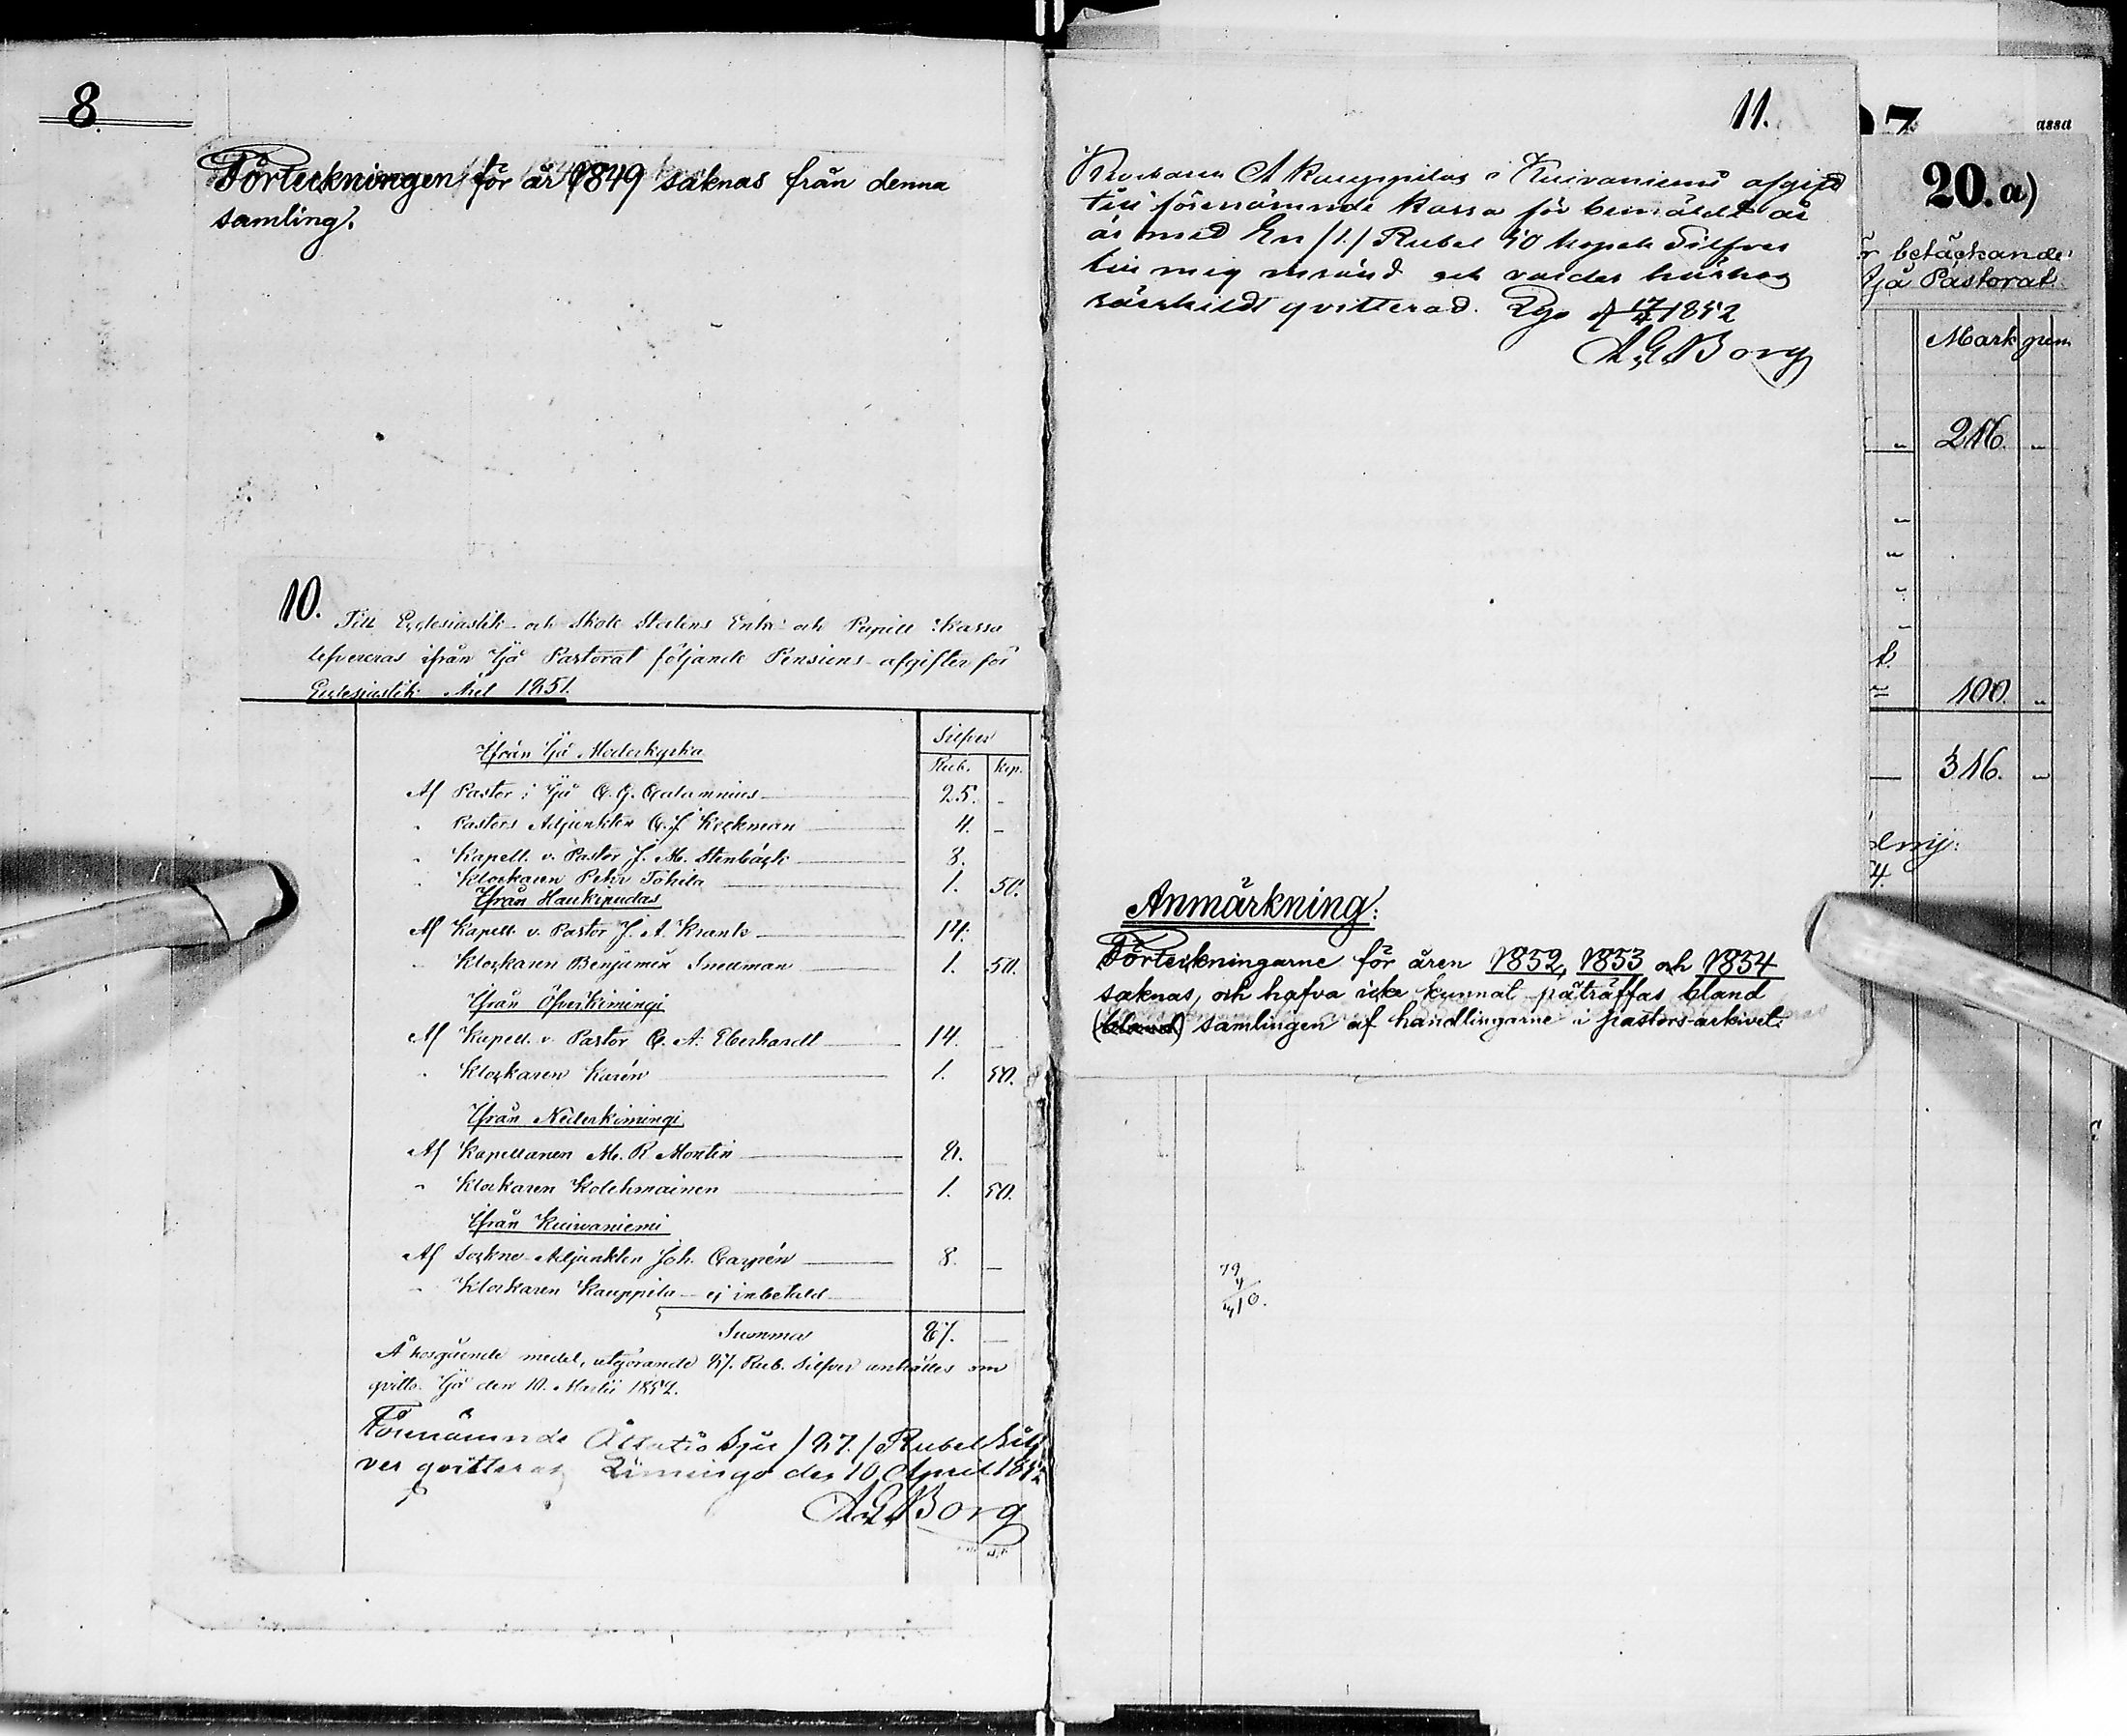 8.
Förteckningen för år 1849 saknas från denna
samling.
10.
Till Ecclesiastik- och Skole Statens Enke- och Pupill Kassa
lefvereras ifrån Ijå Pastorat följande Pensions-afgifter för
Ecclesiastik Året 1851.
Silfver
Rub. Kop.
Ifrån Ijå Moderkyrka
Af Pastor i Ijå C. G. Calamnius 25. -
" Pastors Adjunkten C. J. Keckman 4. -
" Kapell. v. Pastor J. M. Stenbäck 8.
" Klockaren Petr Töhila 1. 50.
Ifrån Haukipudas
Af Kapell. v. Pastor J. A. Krank 14.
" Klockaren Benjamin Snellman 1. 50.
Ifrån Öfverkimingi
Af Kapell. v. Pastor C. A. Eberhardt 14.
" Klockaren Karén 1. 50.
Ifrån Nederkimingi
Af Kapellanen M. R. Montin 8.
" Klockaren Kolehmainen 1. 50.
Ifrån Kuivaniemi
Af Sockne-Adjunkten Joh. Carpén 8. -
" Klockaren Kauppila - ej inbetald
Summa 87. -
medel, utgörande 87. Rub. Silfver anhålles om
qvitto. Ijå den 10. Martii 1852.
Förenämnde Åttatio Sju /87./ Rubel Silf
ver qvitteras Limingo den 10 April 1852
A. G. Borg
11.
Klockaren A Kauppilas i Kuivaniemi afgift
till förenämnde Kassa för bemälde år
är med En /1./ Rubel 50 kopek Silfver
till mig insänd och varder härhos
särskildt qvitterad. Lgo d 17/4 1852
A. G. Borg
Anmärkning:
Förteckningarne för åren 1852, 1853 och 1854
saknas, och hafva icke kunnat påträffas bland
(bland) samlingen af handlingarne i pastors-arkivet.
assa
20. a)
r betäckande
Ijå Pastorat
Mark
216. "
100. "
316. "
4.